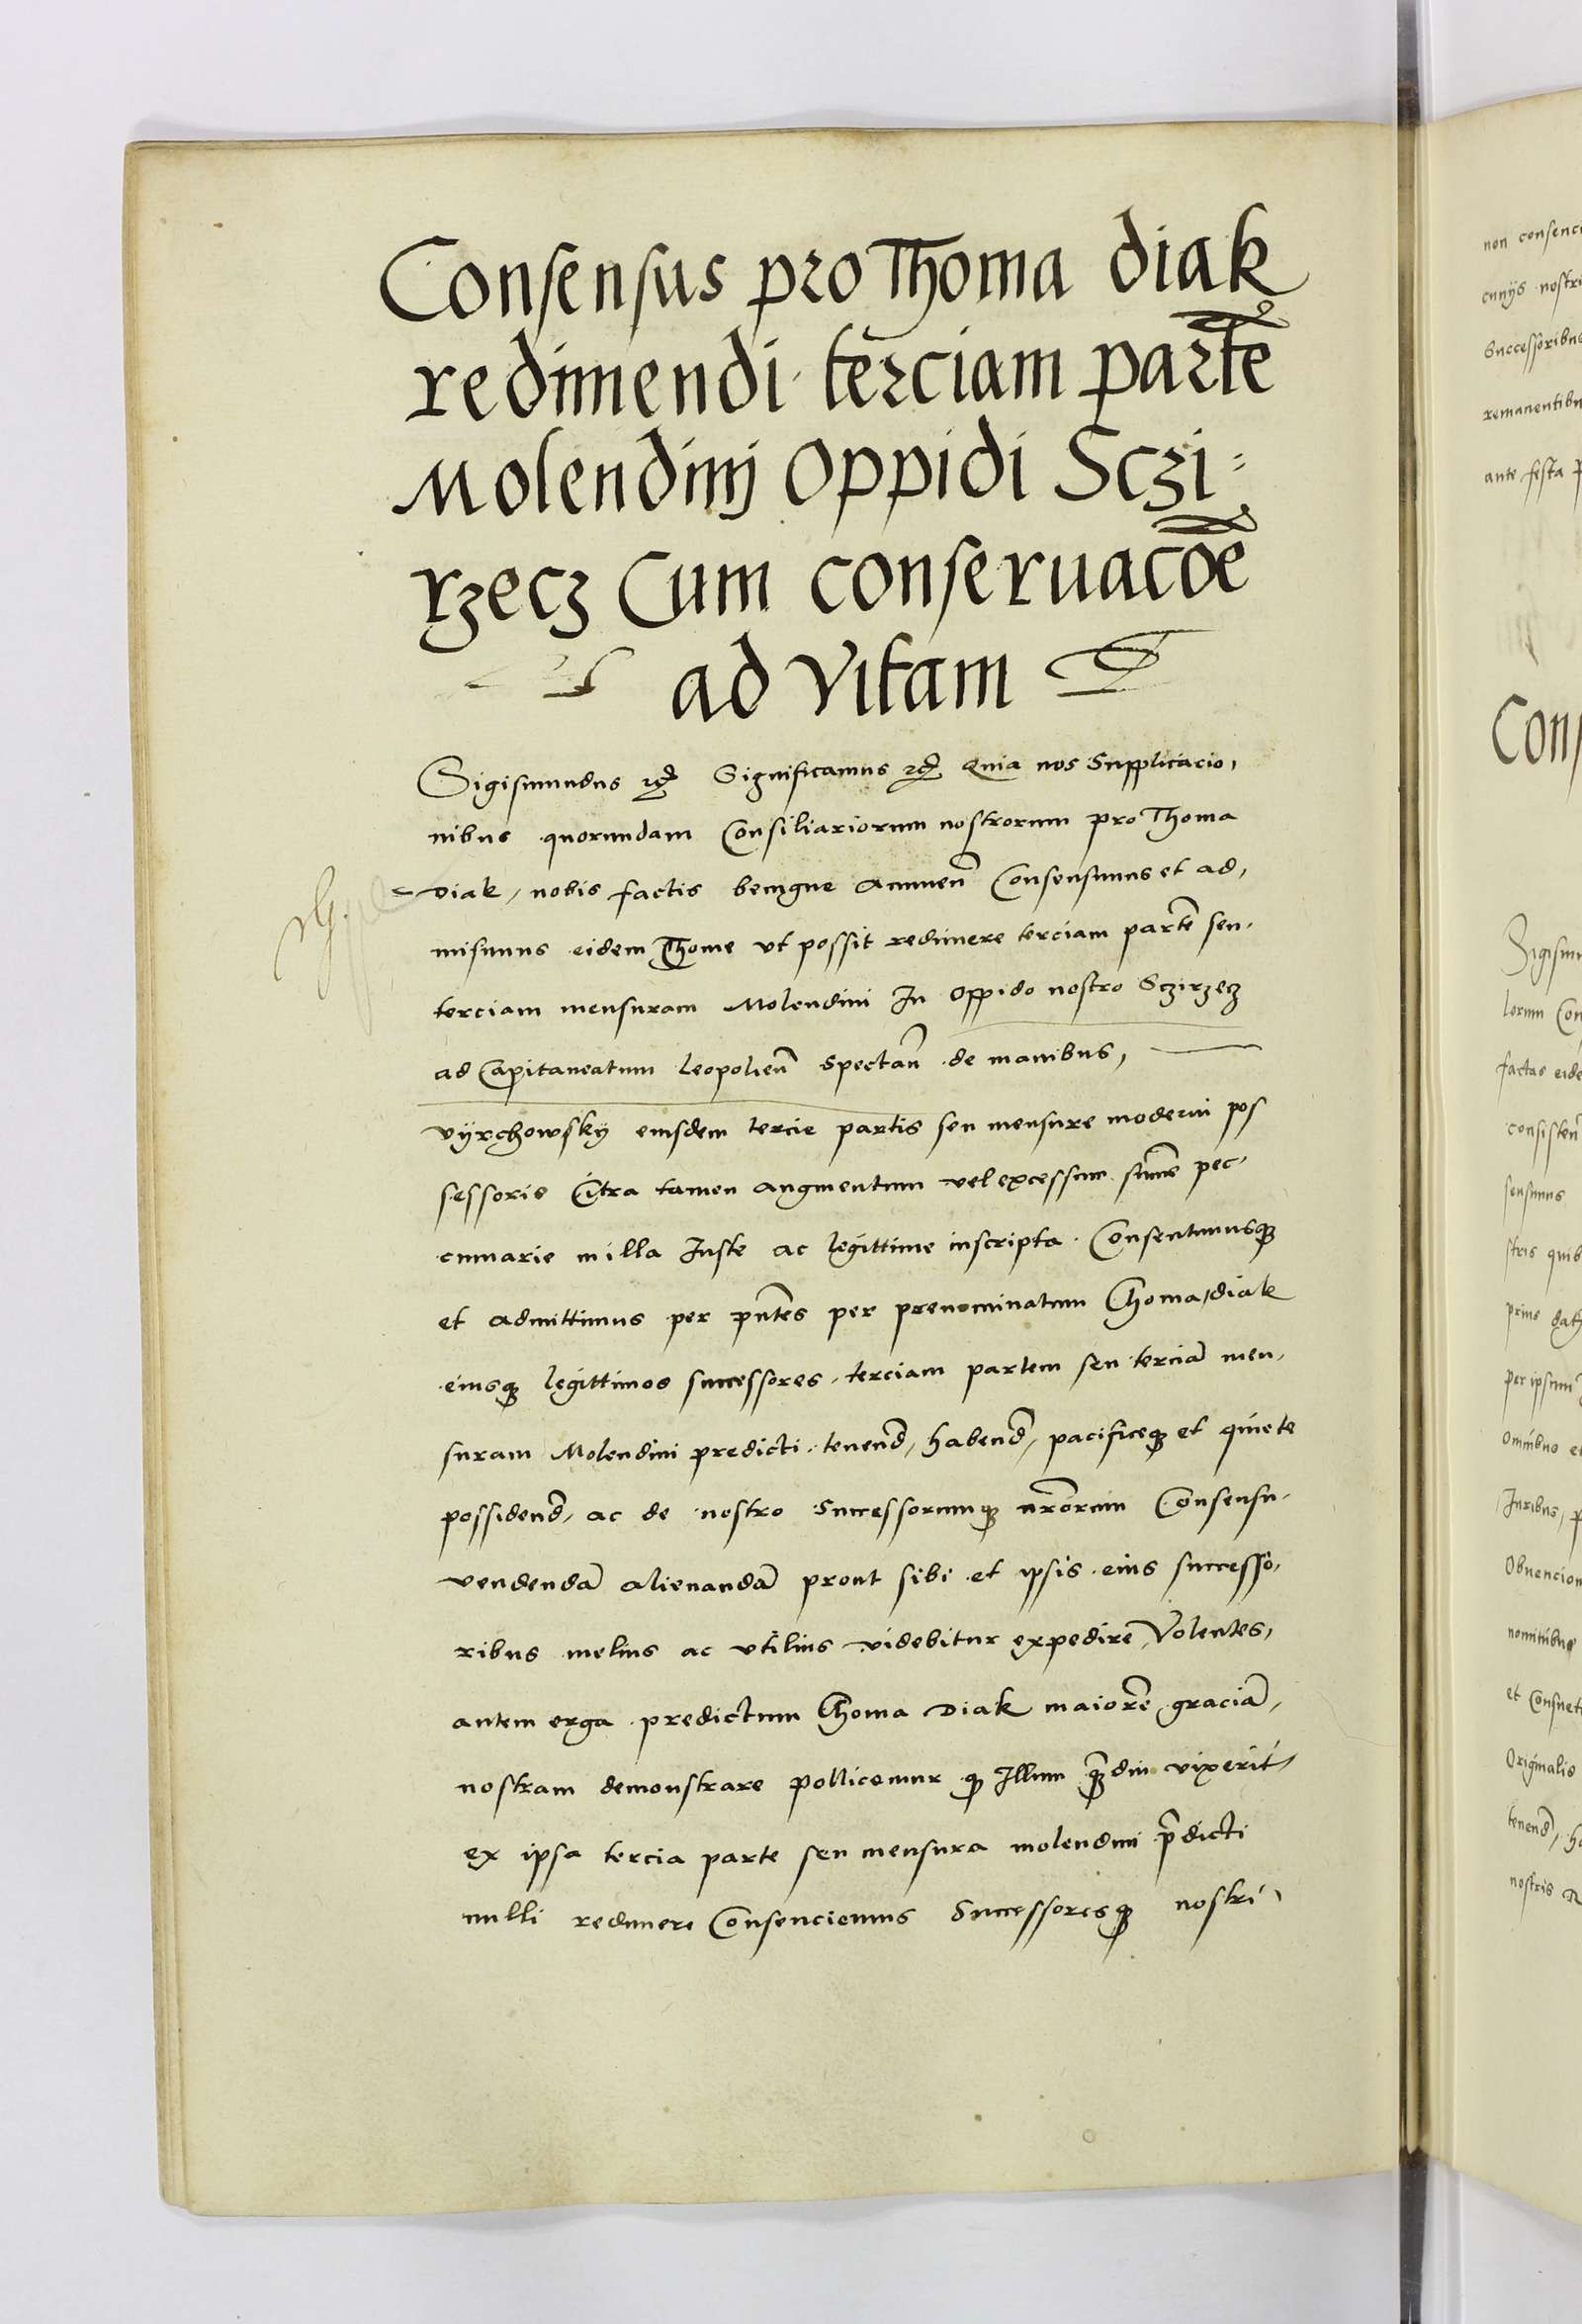 Consensus pro Thoma diak
redimendi terciam parte͂
Molendinj oppidi Sczi=
rzecz Cum conseruaco͂e
ad vitam
Sigismundus etc͂ Significamus etc͂ Quia nos Supplicacio,
nibus quorundam Consiliariorum nostrorum pro Thoma
Diak, nobis factis benigne annuen͂ Consensimus et ad,
misimus eidem Thome vt possit redimere terciam parte͂ seu
terciam mensuram Molendini In oppido nostro Sczirzecz
ad Capitaneatum Leopolien͂ Spectan͂ de manibus,
vÿrchowskÿ eiusdem tercie partis seu mensure moderni pos
sessoris Citra tamen augmentum vel excessum sum͂e pec
cuniarie in illa Iuste ac legittime inscripta. Consentimusq3
et admittimus per pn͂tes per prenominatum Thoma, diak
eiusq3 legittimos successores, terciam partem seu tercia͂ men,
suram Molendini predicti, tenend͂, habend͂, pacificeq3 et quiete
possidend͂, ac de nostro Successorumq3 nr͂orum Consensu
vendenda͂ alienanda͂ prout sibi et ipsis eius successo,
ribus melius ac vtilius videbitur expedire, Volentes,
autem erga predictum Thoma Diak maiore͂ gracia͂,
nostram demonstrare pollicemur q3 Illum q͂3diu vixerit
ex ipsa tercia parte seu mensura molendini p͂dicti
nulli redimere Consenciemus Successoresq3 nostri
non consenci
cunijs nostri
Successoribus
remanentibu
ante festa p
Cons
Sigism
lorum Con
factas eide
consisten͂
sensimus
stris quib
prius dath
per ipsum
Omnibus et
Iuribus, p
Obuencion
nominibus
et Consuet
Originalis
tenend͂, ha
nostris